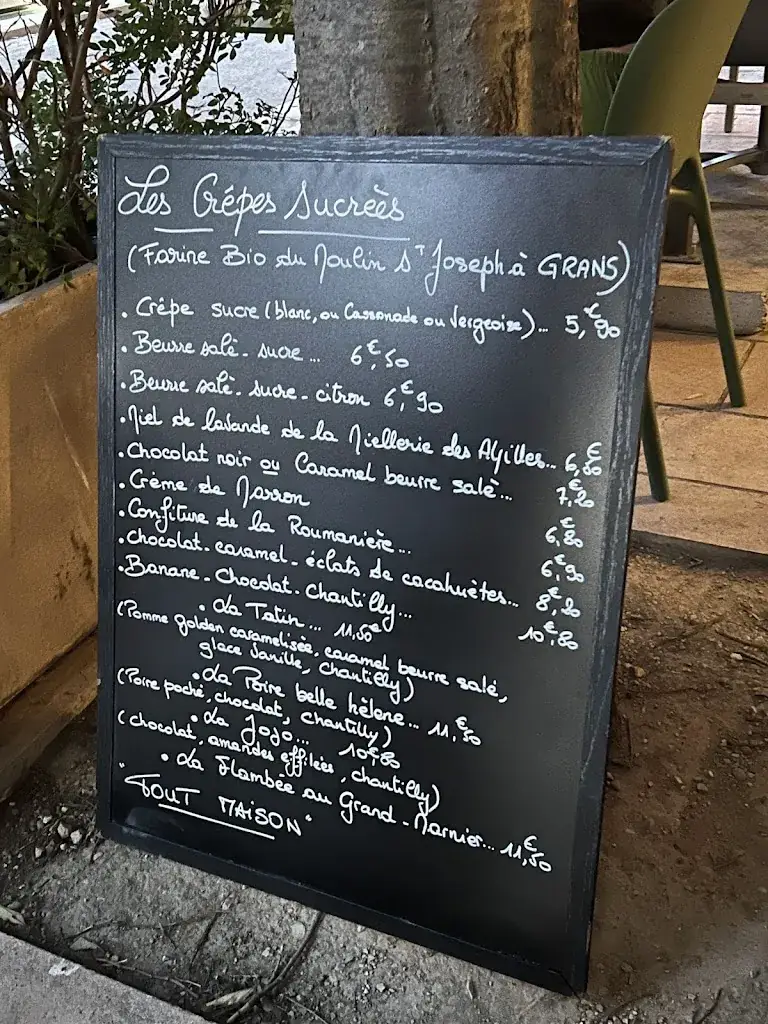 Les Crêpes Sucrées
(Farine Bio du Moulin St Joseph à GRANS)
. Crêpe sucre (blanc, ou Cassonade ou Vergeoise)... 5,€90
. Beurre salé - sucre... 6,€50
. Beurre salé - sucre - citron 6,€90
. Miel de lavande de la Miellerie des Alpilles... 6,€80
. Chocolat noir ou Caramel beurre salé... 7,€20
. Crème de Marron 6,€80
. Confiture de la Roumanière... 6,€90
. Chocolat - caramel - éclats de cacahuètes... 8,€20
. Banane - Chocolat - Chantilly... 10,€80
. La Tatin... 11,50€
(Pomme golden caramelisée, caramel beurre salé,
glace vanille, chantilly)
. La Poire belle hélène... 11,€50
(Poire poché, chocolat, chantilly)
. La Jojo... 10€80
(chocolat, amandes effilées, chantilly)
. La Flambée au Grand-Marnier... 11,€50
"TOUT MAISON"